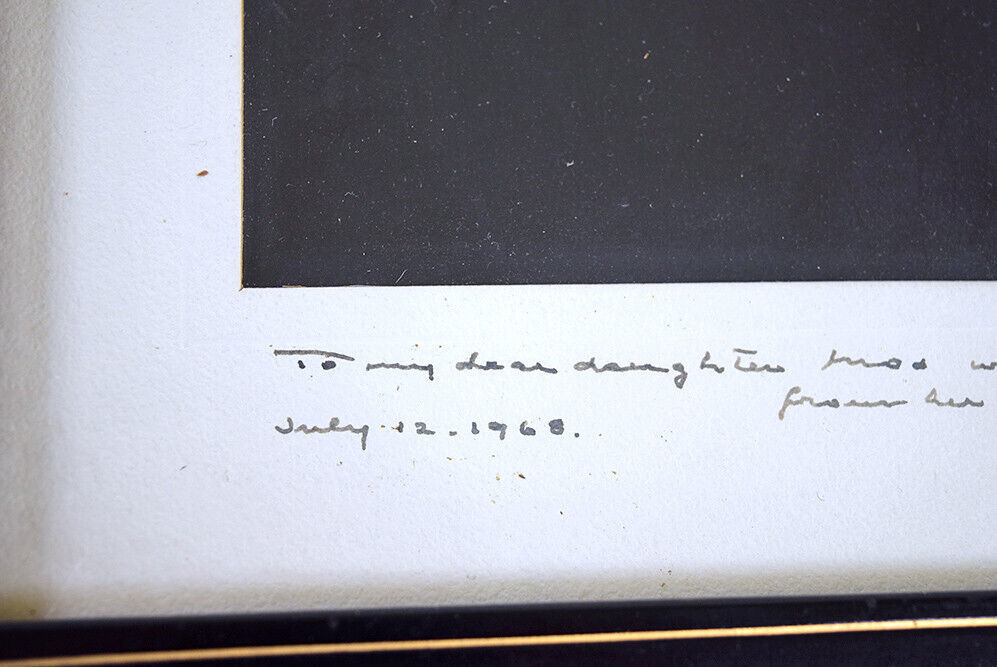 To my dear daughter
from her
July 12. 1968.